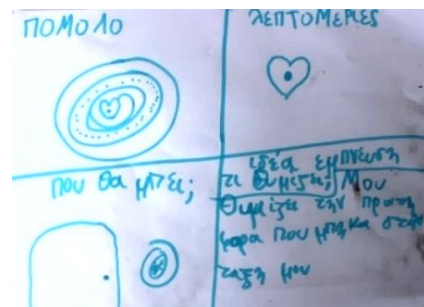 ΠΟΜΟΛΟ
ΛΕΠΤΟΜΕΡΙΕΣ
που θα μπει;
ιδέα έμπνευση
τι θυμίζει; Μου
θυμίζει την πρώτη
φορα που μπηκα στην
ταξη μου